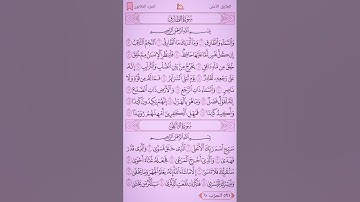 الطارق الأعلى
الجزء الثلاثون
سورة الطارق
بسم الله الرحمن الرحيم
والسماء والطارق ١ وما أدراك ما الطارق ٢ النجم الثاقب ٣
إن كل نفس لما عليها حافظ ٤ فلينظر الإنسان مم خلق ٥
خلق من ماء دافق ٦ يخرج من بين الصلب والترائب ٧ إنه
على رجعه لقادر ٨ يوم تبلى السرائر ٩ فما له من قوة ولا
ناصر ١٠ والسماء ذات الرجع ١١ والأرض ذات الصدع ١٢
إنه لقول فصل ١٣ وما هو بالهزل ١٤ إنهم يكيدون كيدا ١٥
وأكيد كيدا ١٦ فمهل الكافرين أمهلهم رويدا ١٧
سورة الأعلى
بسم الله الرحمن الرحيم
سبح اسم ربك الأعلى ١ الذي خلق فسوى ٢ والذي قدر
فهدى ٣ والذي أخرج المرعى ٤ فجعله غثاء أحوى ٥
سنقرئك فلا تنسى ٦ إلا ما شاء الله إنه يعلم الجهر وما يخفى ٧
ونيسرك لليسرى ٨ فذكر إن نفعت الذكرى ٩ سيذكر من يخشى ١٠
٥٩١ الحزب ٦٠